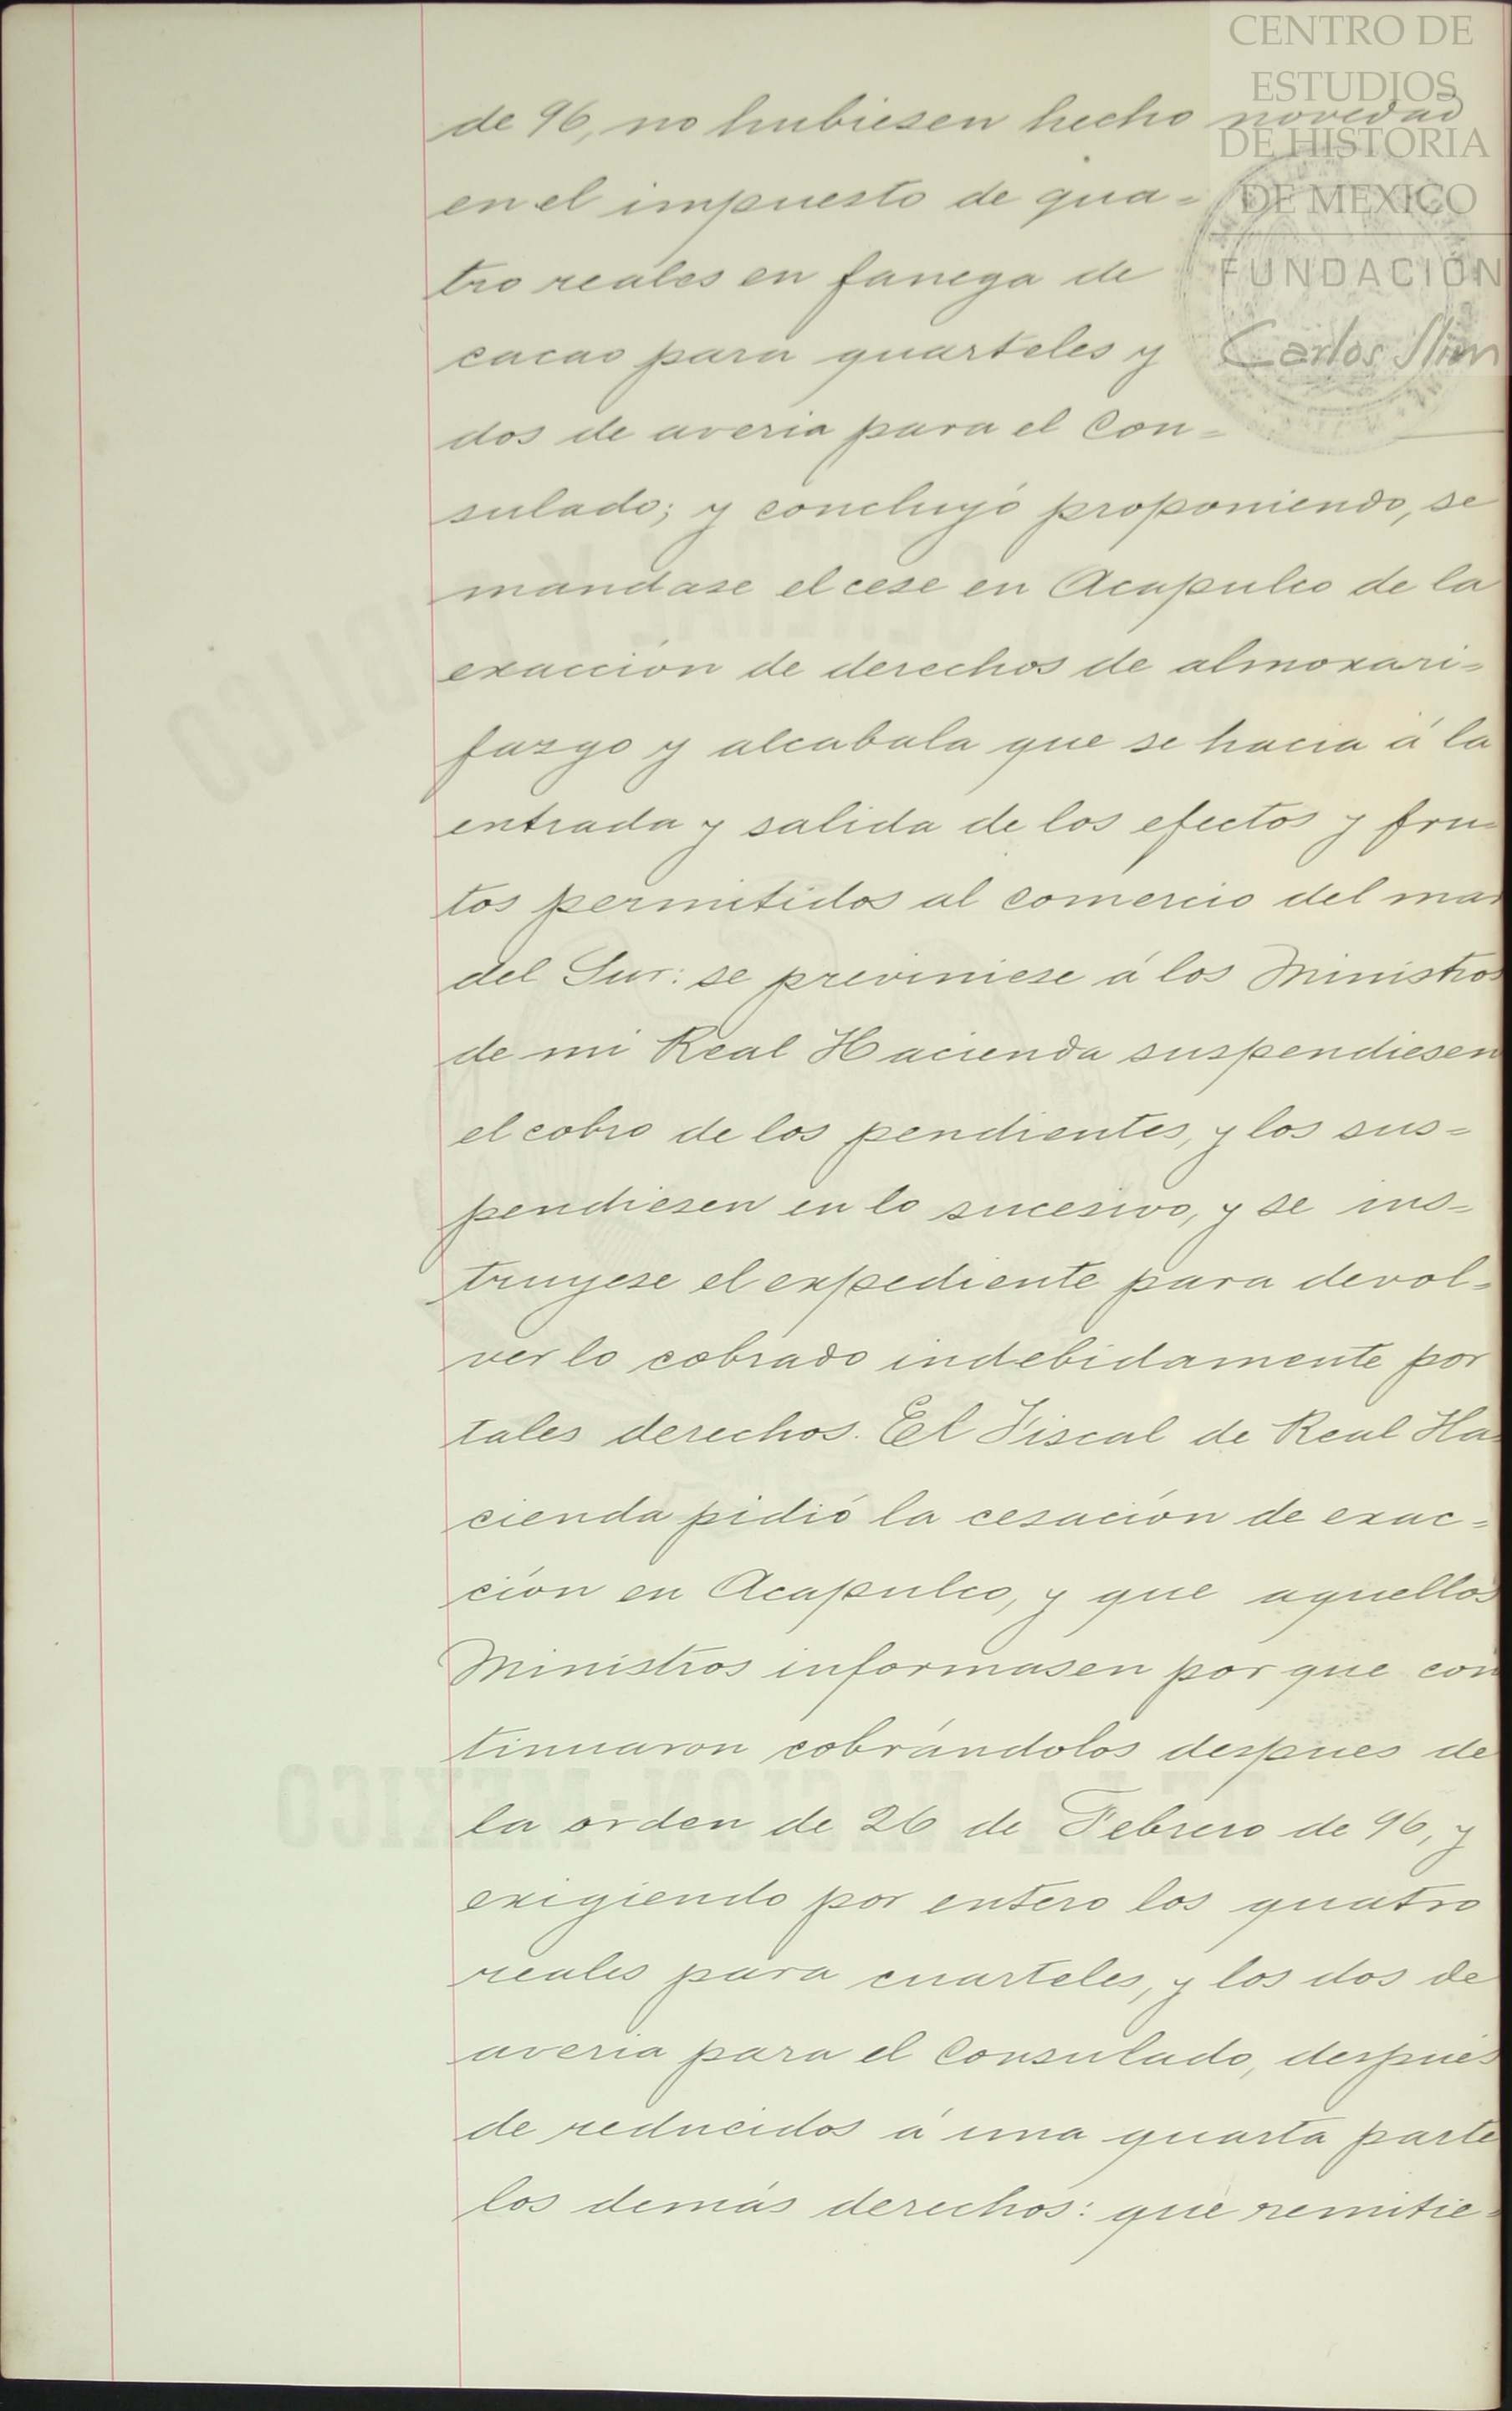 CENTRO DE
ESTUDIOS
DE HISTORIA
DE MEXICO
FUNDACIÓN
Carlos Slim
de 96, no hubiesen hecho novedad
en el impuesto de qua=
tro reales en fanega de
cacao para quarteles y
dos de averia para el Con=
sulado; y concluyó proponiendo, se
mandase el cese en Acapulco de la
exaccion de derechos de almoxari=
fazgo y alcabala que se hacia á la
entrada y salida de los efectos y fru=
tos permitidos al comercio del mar
del Sur: se previniese á los Ministros
de mi Real Hacienda suspendiesen
el cobro de los pendientes, y los sus=
pendiesen en lo sucesivo, y se ins=
truyese el expediente para devol=
ver lo cobrado indebidamente por
tales derechos. El Fiscal de Real Ha
cienda pidió la cesación de exac=
cion en Acapulco, y que aquellos
Ministros informasen por que con
tinuaron cobrándolos despues de
la orden de 26 de Febrero de 96, y
exigiendo por entero los quatro
reales para cuarteles, y los dos de
averia para el Consulado, despues
de reducidos á una quarta parte
los demás derechos: que remitie=